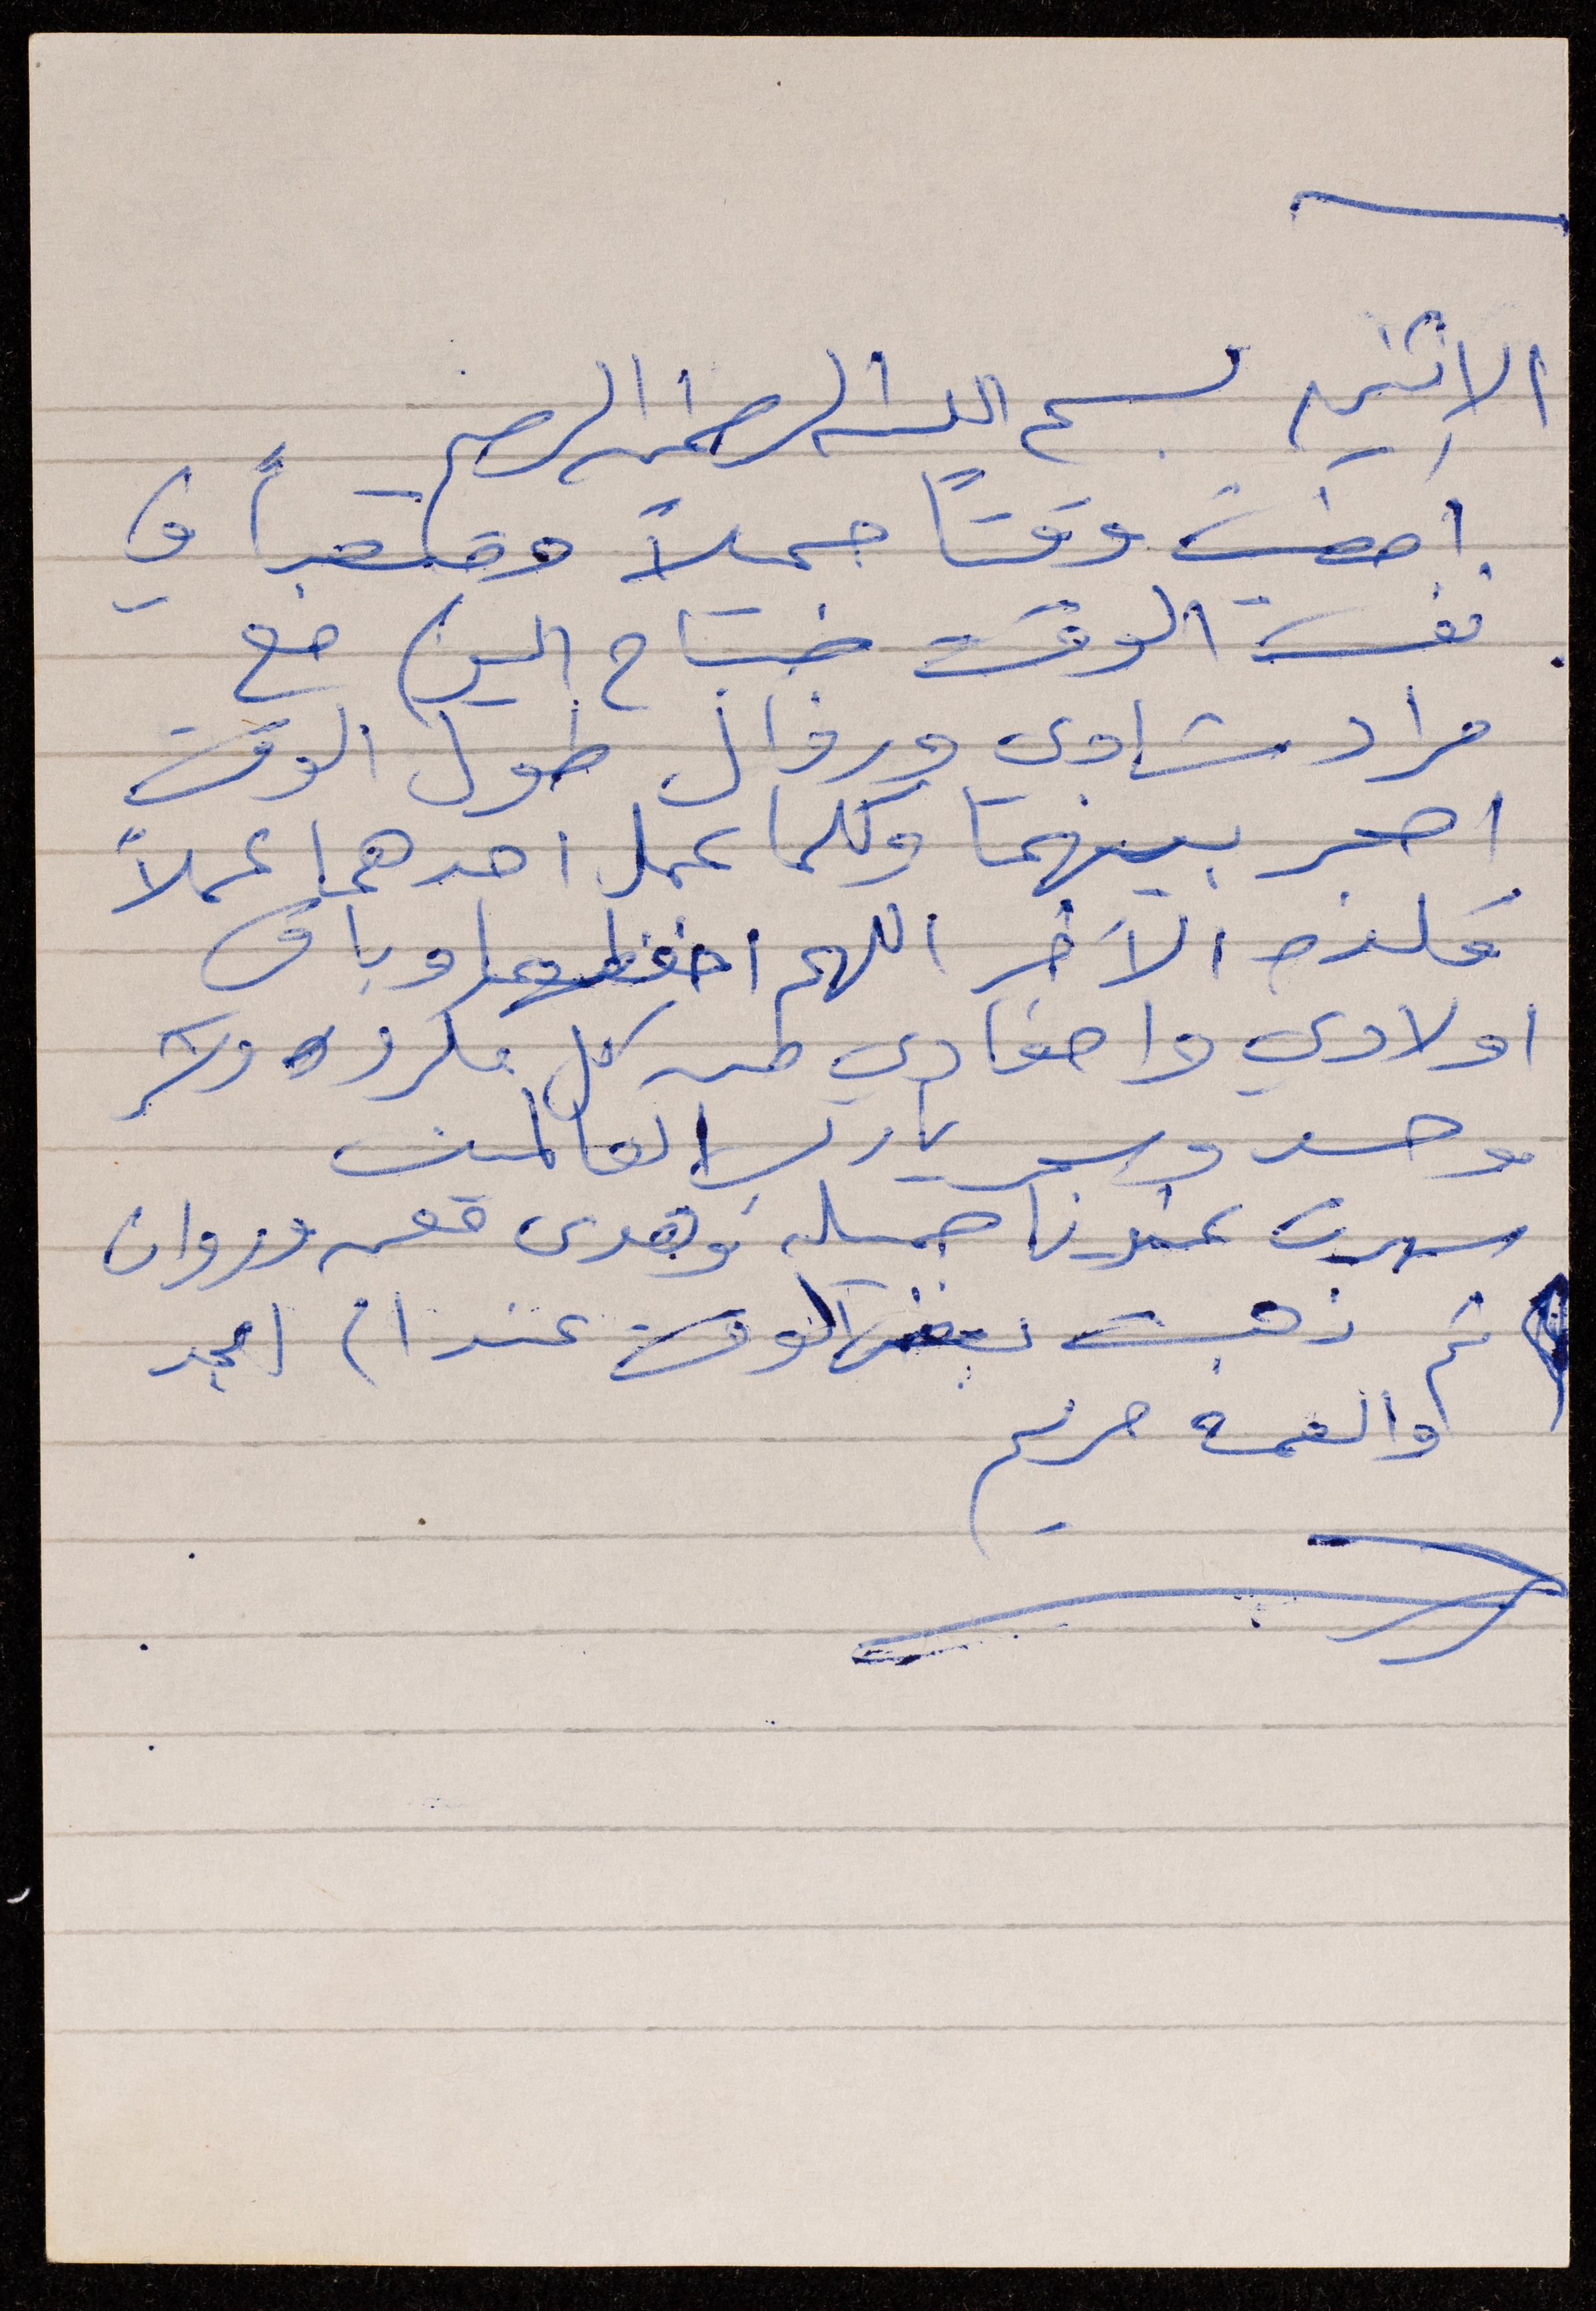 الاثنين بسم الله الرحمن الرحيم
أمضيت وقتاً جميلاً ومتعباً في
نفس الوقت صباح اليوم مع
مراد شادي ورزان طول الوقت
احجز بينهما وكلما عمل احدهما عملاً
قلده الآخر اللهم احفظهما وباقي
اولادي واحفادي من كل مكروه وشر
وحسد وسوء يا رب العالمين
سهرت عندنا جميله وهدى معها وروان
ثم ذهبت بعض الوقت عند ام امجد
والعمة مريم